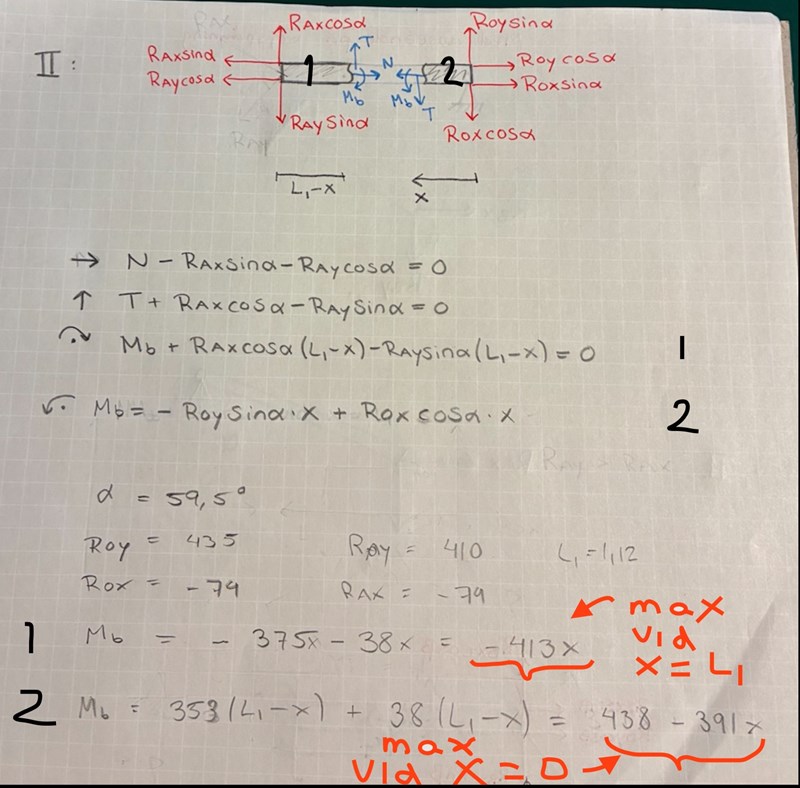 II:
RAxcosα
RAxsinα
RAycosα
RAysinα
1
T
N
Mb
2
Mb
T
Roysinα
Roy cosα
Roxsinα
Roxcosα
L₁-x
x
→ N - RAxsinα - RAycosα = 0
↑ T + RAxcosα - RAysinα = 0
↷ Mb + RAxcosα (L₁-x) - RAysinα (L₁-x) = 0 1
↶ Mb = - Roysinα·x + Roxcosα·x 2
α = 59,5°
Roy = 435 RAy = 410 L₁ = 1,12
Rox = -79 RAx = -79
1 Mb = - 375x - 38x = -413x
max
vid
x = L₁
2 Mb = 353(L₁-x) + 38(L₁-x) = 438 - 391x
max
vid x = 0 →